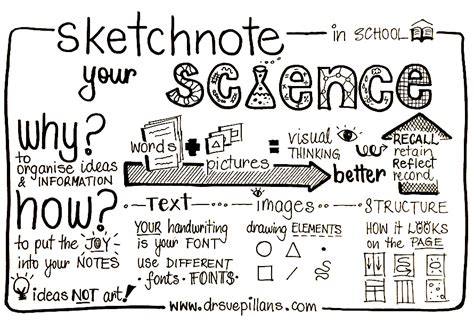 sketchnote
in SCHOOL
your SCIENCE
why?
to
organise ideas
& INFORMATION
words + pictures = visual THINKING
better
RECALL
retain
Reflect
record
how?
to put the JOY
into your NOTES
ideas NOT art!
Text
YOUR handwriting
is your FONT
use DIFFERENT
fonts · FONTS
images
drawing ELEMENTS
STRUCTURE
HOW it LOOKS
on the PAGE
www.drsuepillans.com